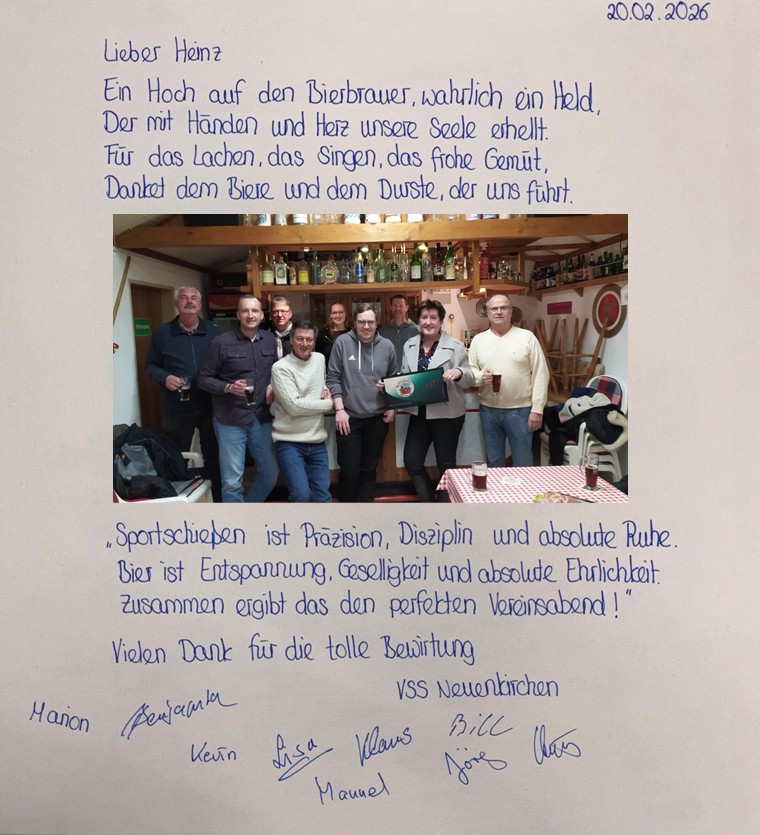 20.02.2026
Lieber Heinz
Ein Hoch auf den Bierbrauer, wahrlich ein Held,
Der mit Händen und Herz unsere Seele erhellt.
Für das Lachen, das Singen, das frohe Gemüt,
Danket dem Biere und dem Durste, der uns führt.
„Sportschießen ist Präzision, Disziplin und absolute Ruhe.
Bier ist Entspannung, Geselligkeit und absolute Ehrlichkeit.
Zusammen ergibt das den perfekten Vereinsabend!"
Vielen Dank für die tolle Bewirtung
VSS Neuenkirchen
Marion Benjamin
Kevin Lisa Klaus Bill
Manuel Jörg